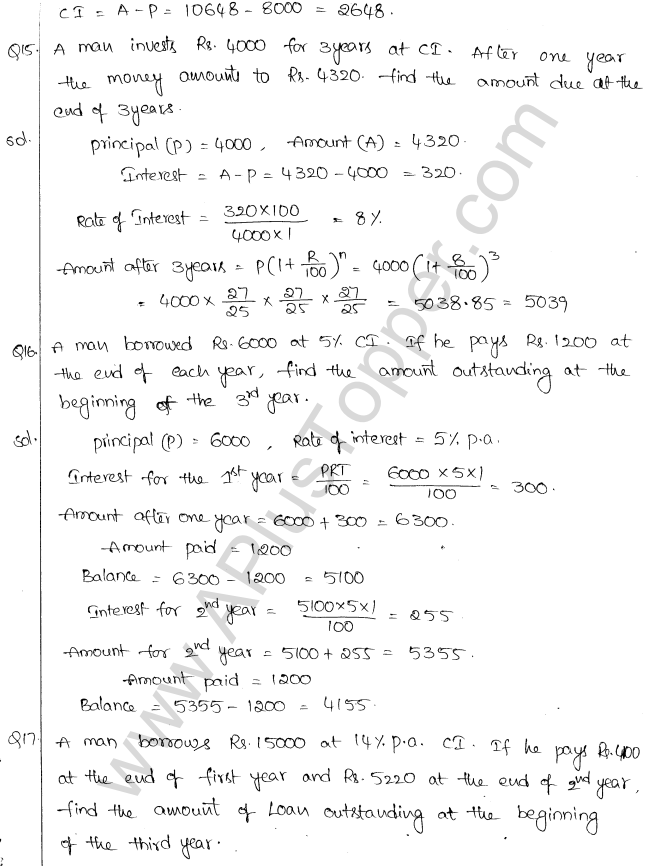 CI = A - P = 10648 - 8000 = 2648.
Q15. A man invests Rs. 4000 for 3years at CI. After one year
the money amounts to Rs. 4320. find the amount due at the
end of 3years.
sol. principal (P) = 4000, Amount (A) = 4320.
Interest = A-P = 4320 - 4000 = 320.
Rate of Interest = 320×100 / 4000×1 = 8%
Amount after 3years = P(1+ R/100)^n = 4000(1+ 8/100)^3
= 4000 × 27/25 × 27/25 × 27/25 = 5038.85 = 5039
Q16. A man borrowed Rs. 6000 at 5% CI. If he pays Rs. 1200 at
the end of each year, find the amount outstanding at the
beginning of the 3rd year.
sol. principal (P) = 6000, Rate of interest = 5% p.a.
Interest for the 1st year = PRT/100 = 6000 × 5×1 / 100 = 300.
Amount after one year = 6000 + 300 = 6300.
Amount paid = 1200
Balance = 6300 - 1200 = 5100
Interest for 2nd year = 5100×5×1 / 100 = 255
Amount for 2nd year = 5100 + 255 = 5355.
Amount paid = 1200
Balance = 5355 - 1200 = 4155.
Q17. A man borrows Rs. 15000 at 14% p.a. CI. If he pays Rs. 4100
at the end of first year and Rs. 5220 at the end of 2nd year,
find the amount of Loan outstanding at the beginning
of the third year.
www.APlusTopper.com